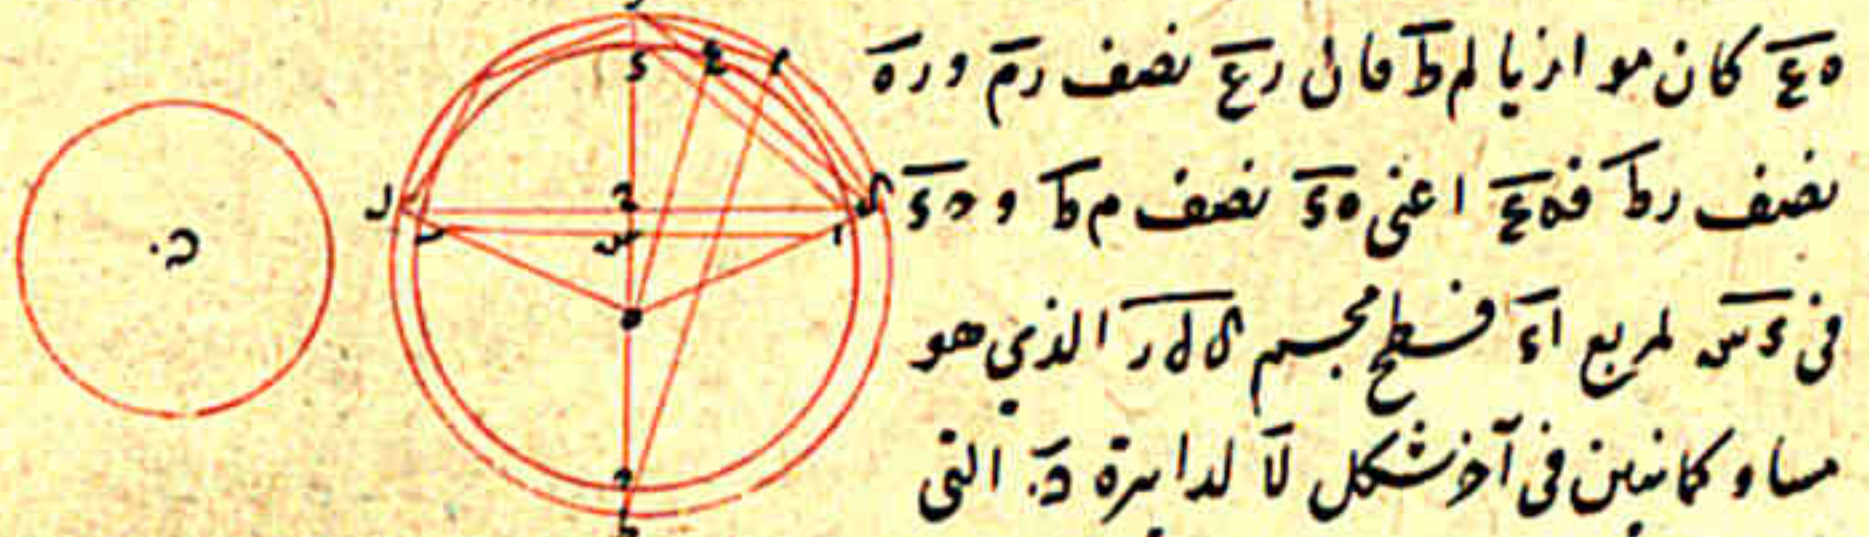 ه‍ع كان موازيا لم ط فان رع نصف رم و ره
نصف رط فه‍ع اعنى ه‍ء نصف م ط و ه‍ء
فى ء س لمربع اء فسطح مجسم ك ل ر الذي هو
مساو كما نبين فى آخر شكل لا لدايرة ن التى